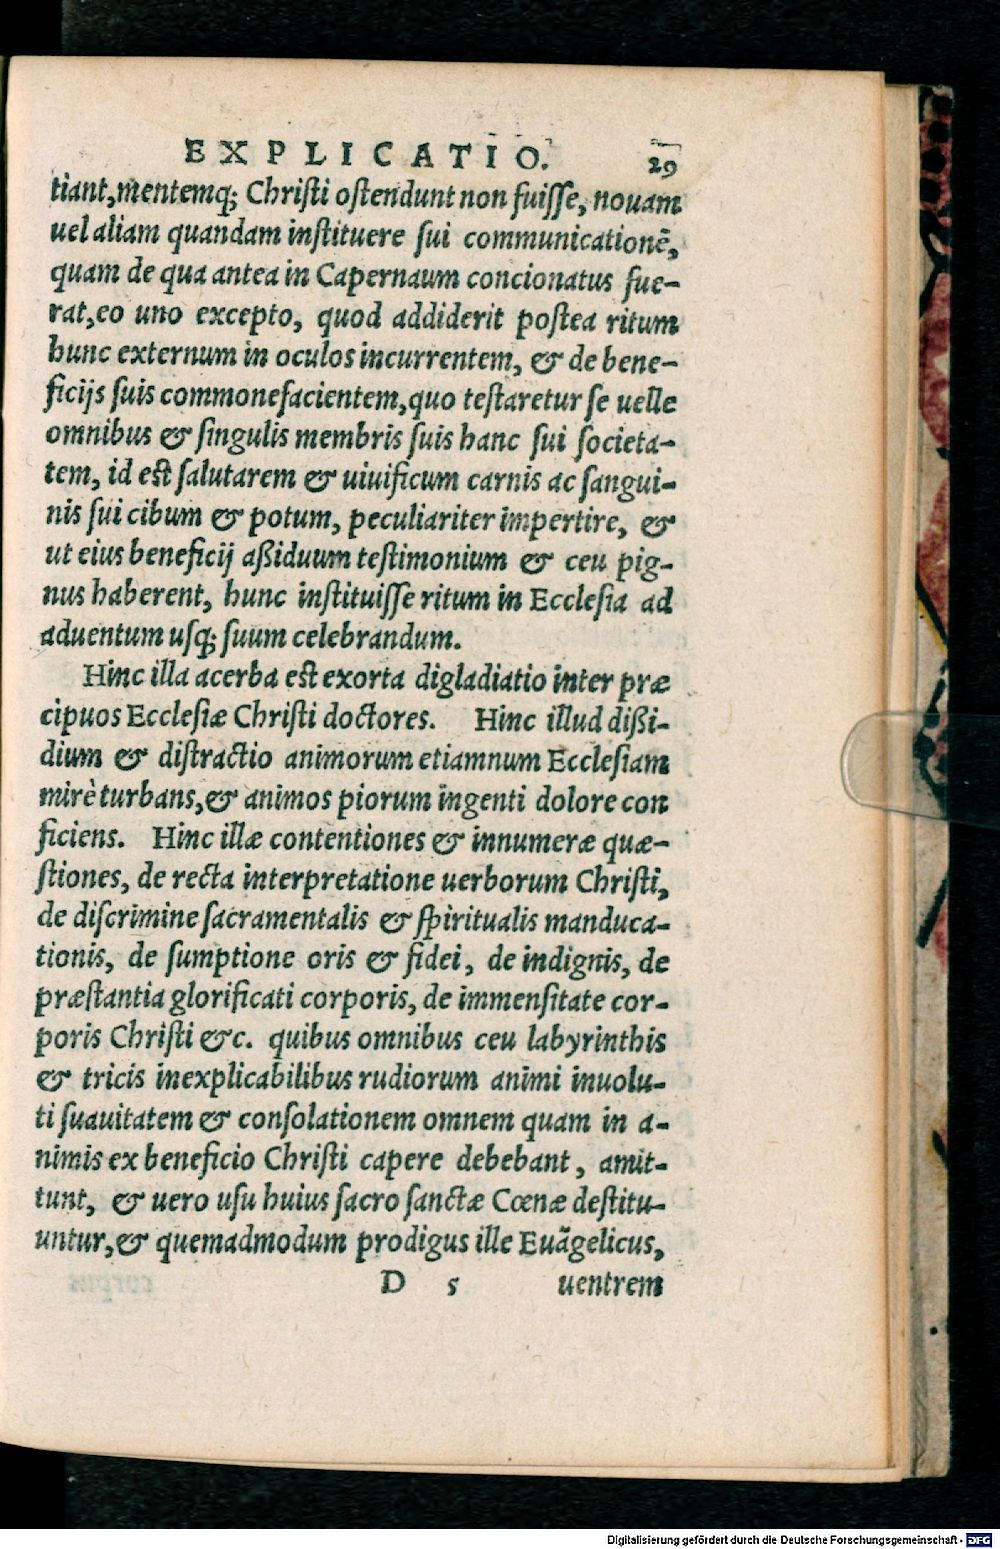 EXPLICATIO. 29
tiant, mentemq́; Chriſti oſtendunt non fuiſſe, nouam
uel aliam quandam inſtituere ſui communicationē,
quam de qua antea in Capernaum concionatus fue-
rat, eo uno excepto, quod addiderit poſtea ritum
hunc externum in oculos incurrentem, & de bene-
ficijs ſuis commonefacientem, quo teſtaretur ſe uelle
omnibus & ſingulis membris ſuis hanc ſui ſocieta-
tem, id eſt ſalutarem & uiuificum carnis ac ſangui-
nis ſui cibum & potum, peculiariter impertire, &
ut eius beneficij aßiduum teſtimonium & ceu pig-
nus haberent, hunc inſtituiſſe ritum in Eccleſia ad
aduentum uſq; ſuum celebrandum.
Hinc illa acerba eſt exorta digladiatio inter præ
cipuos Eccleſiæ Chriſti doctores. Hinc illud dißi-
dium & diſtractio animorum etiamnum Eccleſiam
mirè turbans, & animos piorum ingenti dolore con
ficiens. Hinc illæ contentiones & innumeræ quæ-
ſtiones, de recta interpretatione uerborum Chriſti,
de diſcrimine ſacramentalis & ſpiritualis manduca-
tionis, de ſumptione oris & fidei, de indignis, de
præſtantia glorificati corporis, de immenſitate cor-
poris Chriſti &c. quibus omnibus ceu labyrinthis
& tricis inexplicabilibus rudiorum animi inuolu-
ti ſuauitatem & conſolationem omnem quam in a-
nimis ex beneficio Chriſti capere debebant, amit-
tunt, & uero uſu huius ſacro ſanctæ Cœnæ deſtitu-
untur, & quemadmodum prodigus ille Euãgelicus,
D 5 uentrem
Digitalisierung gefördert durch die Deutsche Forschungsgemeinschaft - DFG